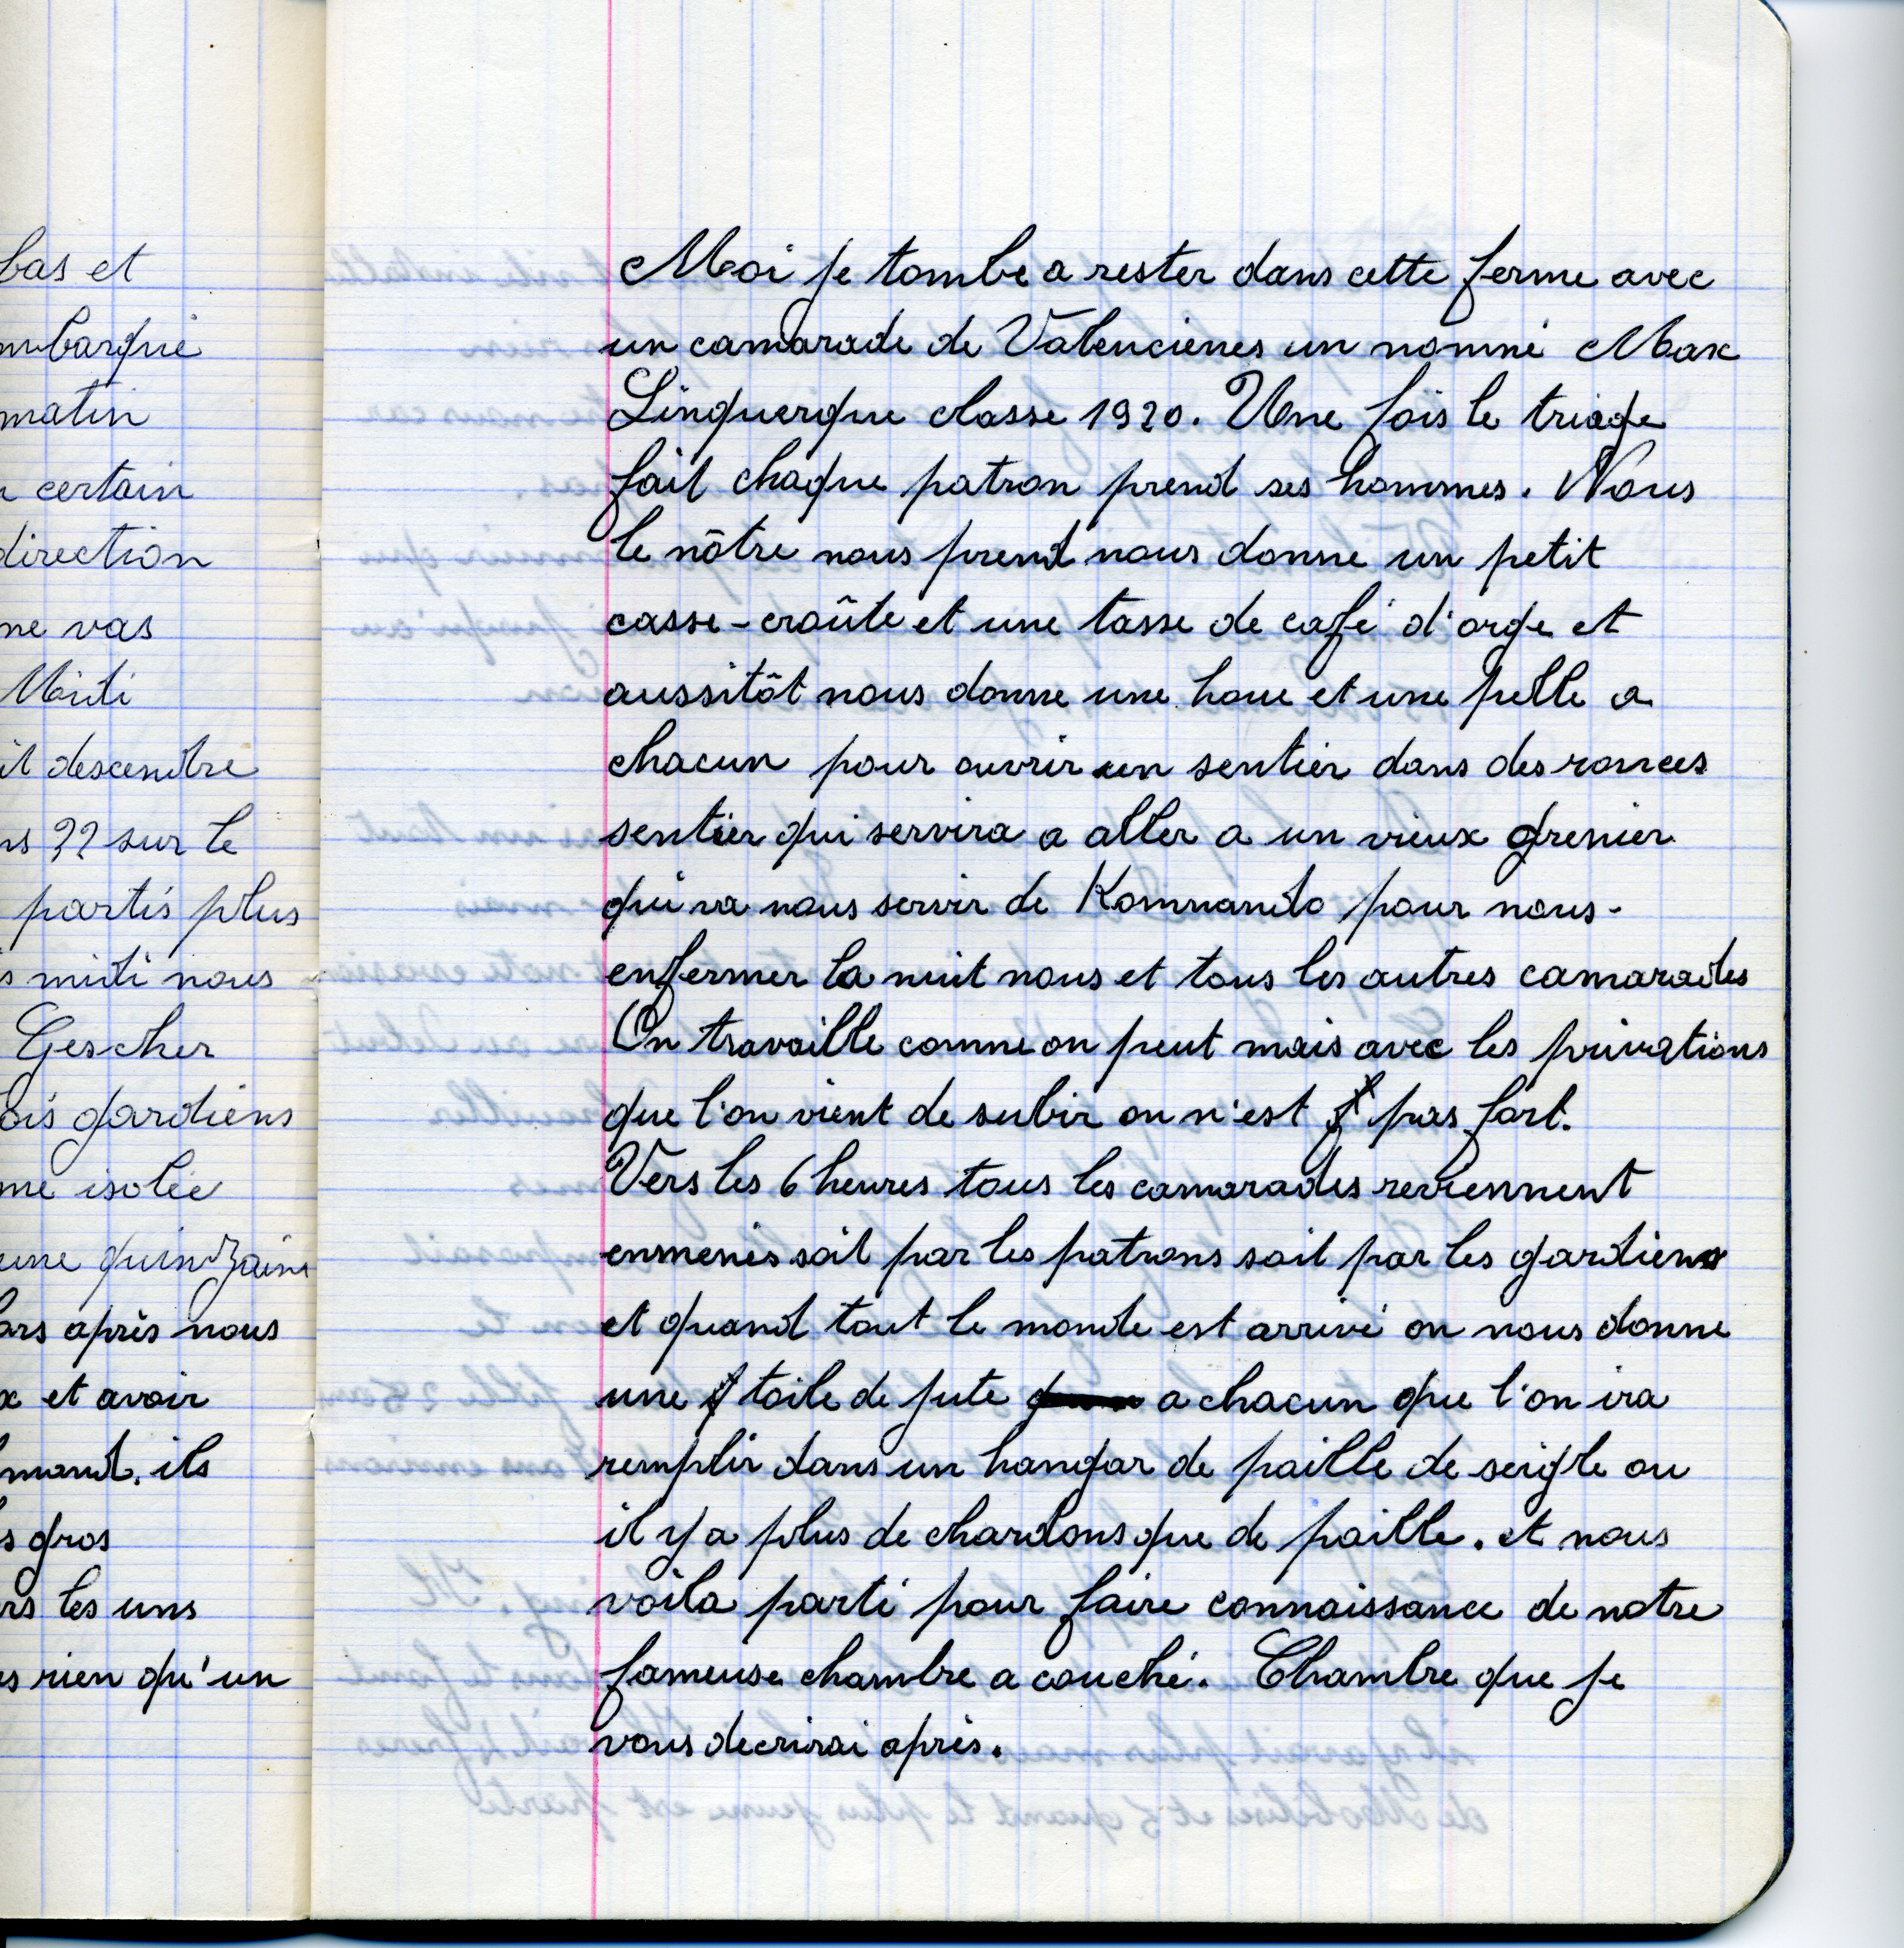 bas et
mbarqué
matin
certain
direction
ne vas
Midi
it descendre
ns ?? sur le
partis plus
s midi nous
Gescher
ois gardiens
me isolée
une quinzaine
ors après nous
x et avoir
mand. ils
s gros
rs les uns
s rien qu'un
Moi je tombe a rester dans cette ferme avec
un camarade de Valencienes un nommé Max
Linguergue classe 1920. Une fois le triage
fait chaque patron prend ses hommes. Nous
le nôtre nous prend nous donne un petit
casse-croûte et une tasse de café d'orge et
aussitôt nous donne une houe et une pelle a
chacun pour ouvrir un sentier dans des ronces
sentier qui servira a aller a un vieux grenier
qui va nous servir de Kommando pour nous-
enfermer la nuit nous et tous les autres camarades
On travaille comme on peut mais avec les privations
que l'on vient de subir on n'est pas fort.
Vers les 6 heures tous les camarades reviennent
enmenés soit par les patrons soit par les gardiens
et quand tout le monde est arrivé on nous donne
une toile de jute a chacun que l'on ira
remplir dans un hangar de paille de seigle ou
il y a plus de chardons que de paille. et nous
voila parti pour faire connaissance de notre
fameuse chambre a couché. Chambre que je
vous decrirai après.